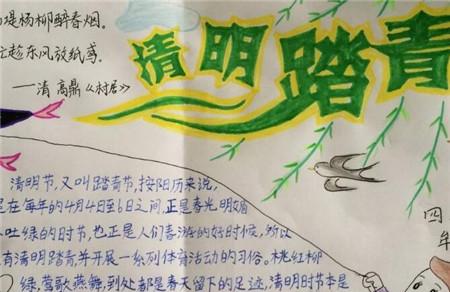 堤杨柳醉春烟。
忙趁东风放纸鸢。
——清 高鼎《村居》
清明踏青
清明节,又叫踏青节,按阳历来说,
是在每年的4月4日至6日之间,正是春光明媚
吐绿的时节,也正是人们春游的好时候,所以
有清明踏青,并开展一系列体育活动的习俗。桃红柳
绿,莺歌燕舞,到处都是春天留下的足迹,清明时节本是
四
年